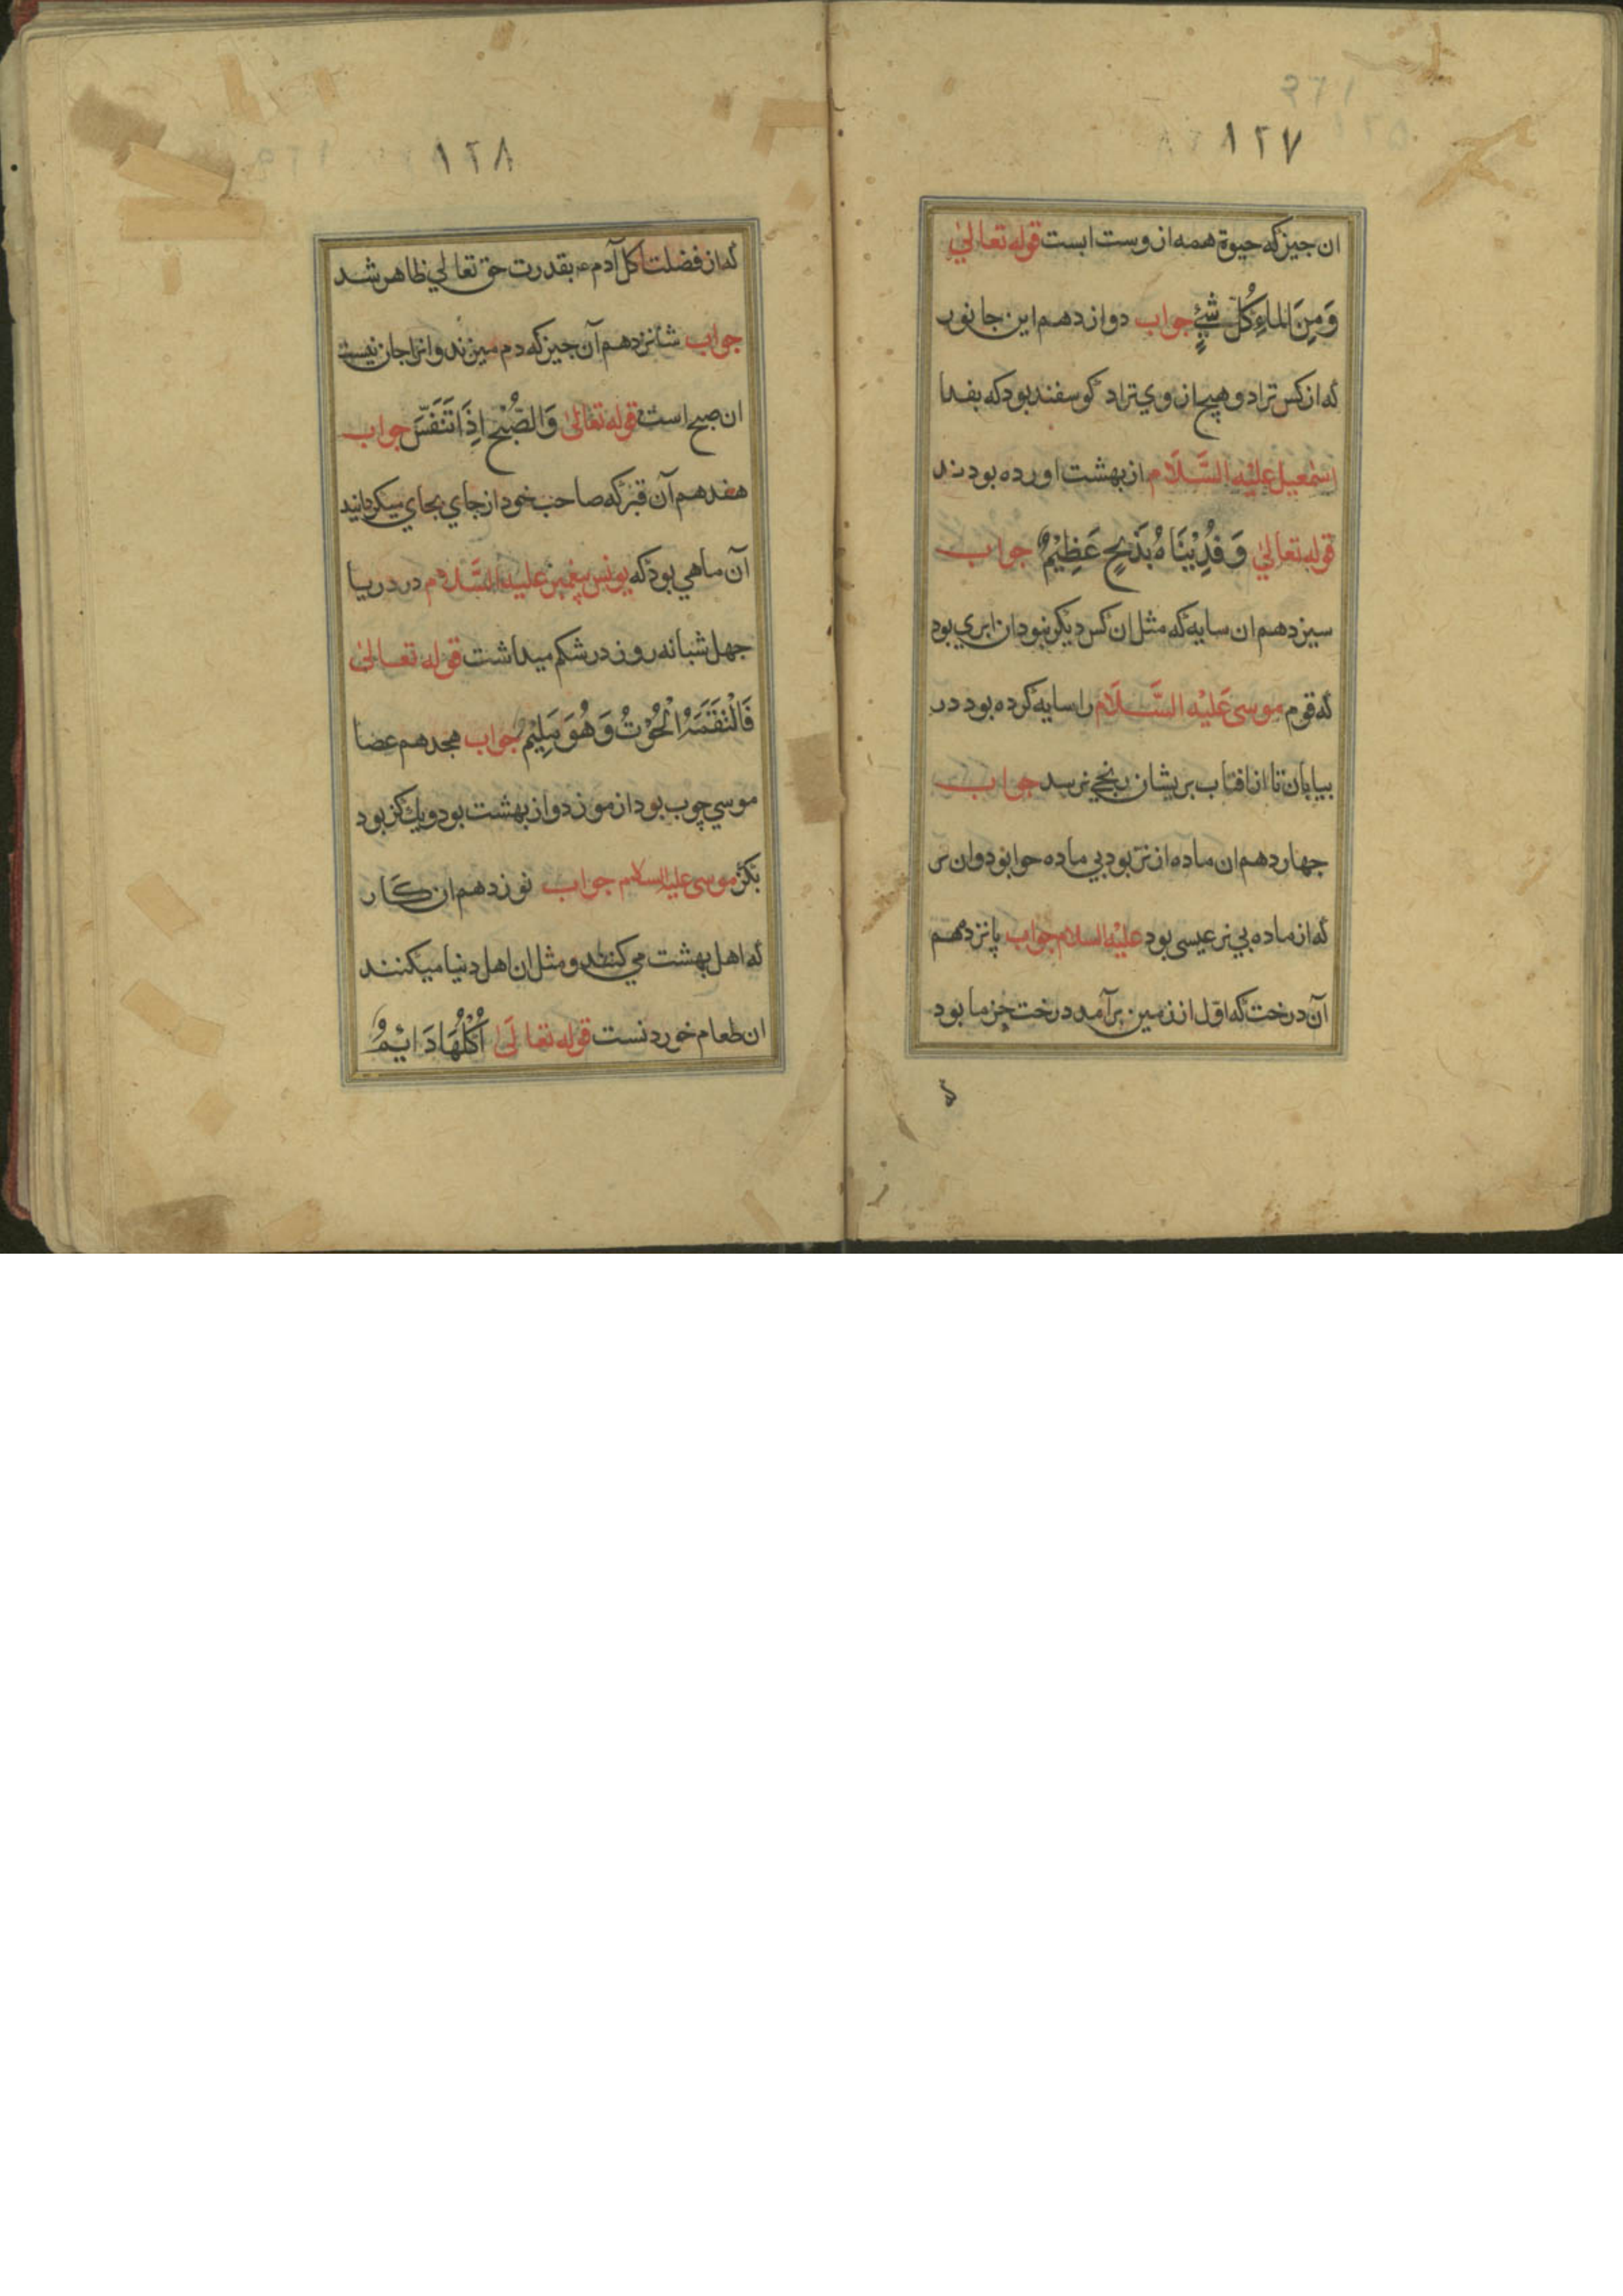 ١٢٧
ان جیز که حیوة همه از وست ابست قوله تعالیٰ
وَمِنَ الماءِ كُلّ شَیْءٍ جواب دوازدهم این جانور
که از کس تزاد و هیچ از وي تزاد کوسفند بود که بفدا
اسْمعیل علیْه السَّلَام از بهشت اورده بودند
قوله تعالیٰ وَ فَدَيْنَاهُ بِذَبْحٍ عَظِيْمٌ جواب
سیزدهم ان سایه که مثل ان کس دیکر نبود ان ابري بود
که قوم موسی عَلیْه السَّلَام را سایه کرده بود در
بیابان تا از افتاب بریشان رنجي نرسد جواب
جهاردهم ان ماده از نر بود بي ماده حوا بود وان نر
که از ماده بي نر عیسی بود علیْه السلام جواب پانزدهم
آن درخت که اوّل از زمین برآمد درخت خرما بود
که
١٢٨
که از فضلت کل آدم ع بقدرت حق تعالي ظاهر شد
جواب شانزدهم آن جیز که دم میزند و انرا جان نیست
ان صبح است قوله تعالیٰ وَالصُّبْحِ اِذَا تَنَفَّسَ جواب
هفدهم آن قبر که صاحب خود از جاي بجاي میکرداند
آن ماهي بود که یونس پیغمبر علیه السَّلام در دریا
جهل شبانه روز در شکم میداشت قوله تعالیٰ
فَالْتَقَمَهُ الْحُوْتُ وَهُوَ مَلِيْمٌ جواب هجدهم عصا
موسي چوب بود از مورد و از بهشت بود و یك کز بود
بکز موسی علیه السلام جواب نوزدهم ان کار
که اهل بهشت مي کنند و مثل ان اهل دنیا میکنند
ان طعام خوردنست قوله تعالَیٰ اُكُلُهَا دَائِمٌ